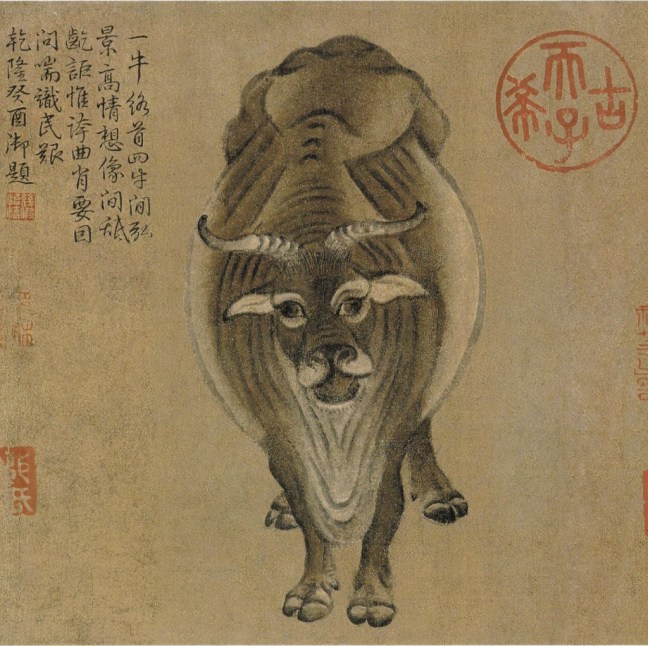 一牛絡首四牛閒弘
景高情想像間舐
齕詎惟誇曲肖要因
問喘識民艱
乾隆癸酉御題
古希天子